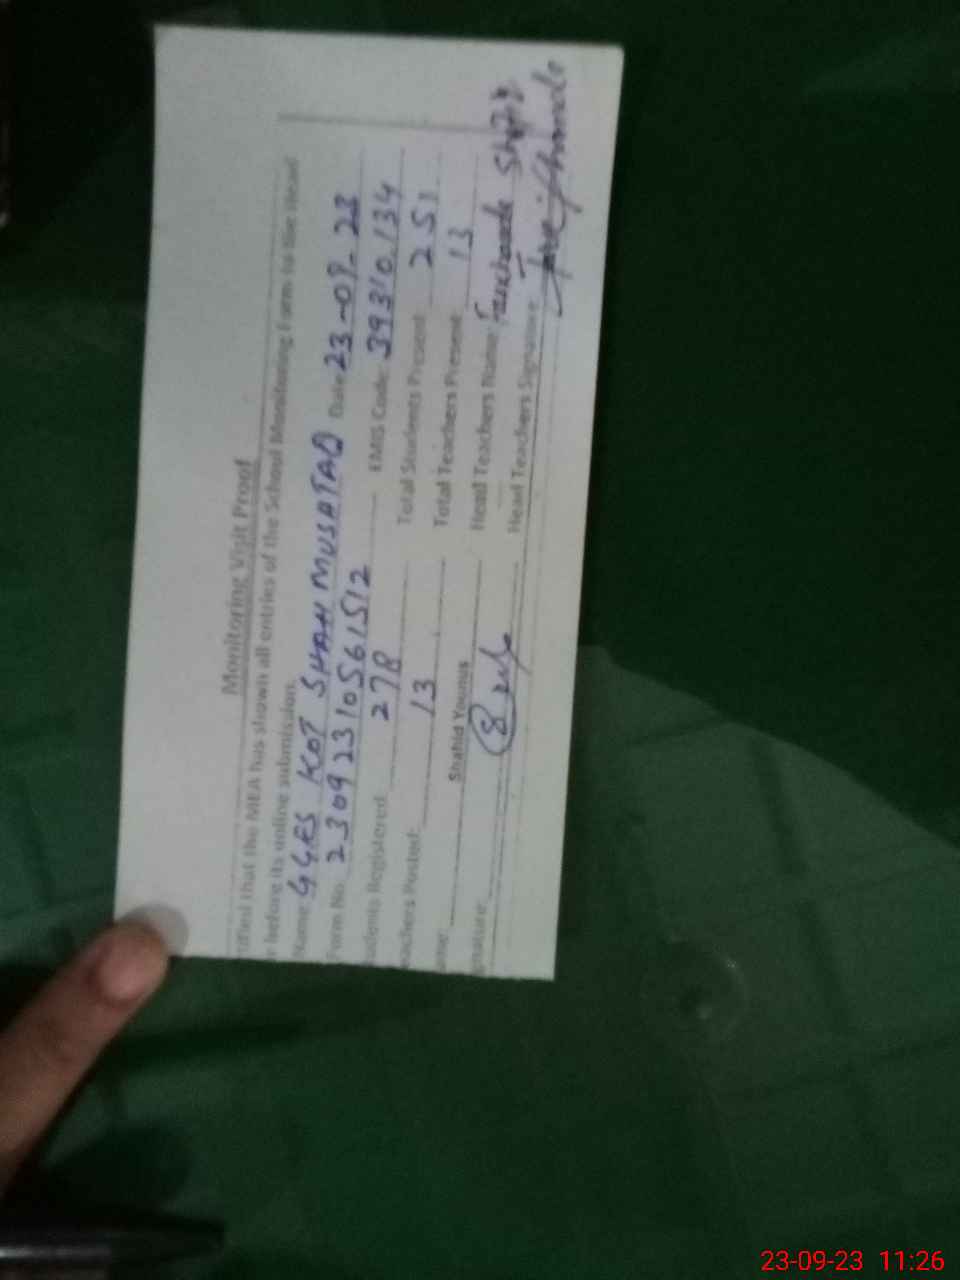 Monitoring Visit Proof
rtified that the MEA has shown all entries of the School Monitoring Form to the Head
r before its online submission.
Name GGES KOT SHAH MUSHTAQ Date 23-09-23
Form No. 23092310561512 EMIS Code: 39310134
tudents Registered 278 Total Students Present: 251
eachers Posted: 13 Total Teachers Present: 13
ame: Shahid Younus Head Teachers Name:
gnature: Head Teachers Signature:
23-09-23 11:26